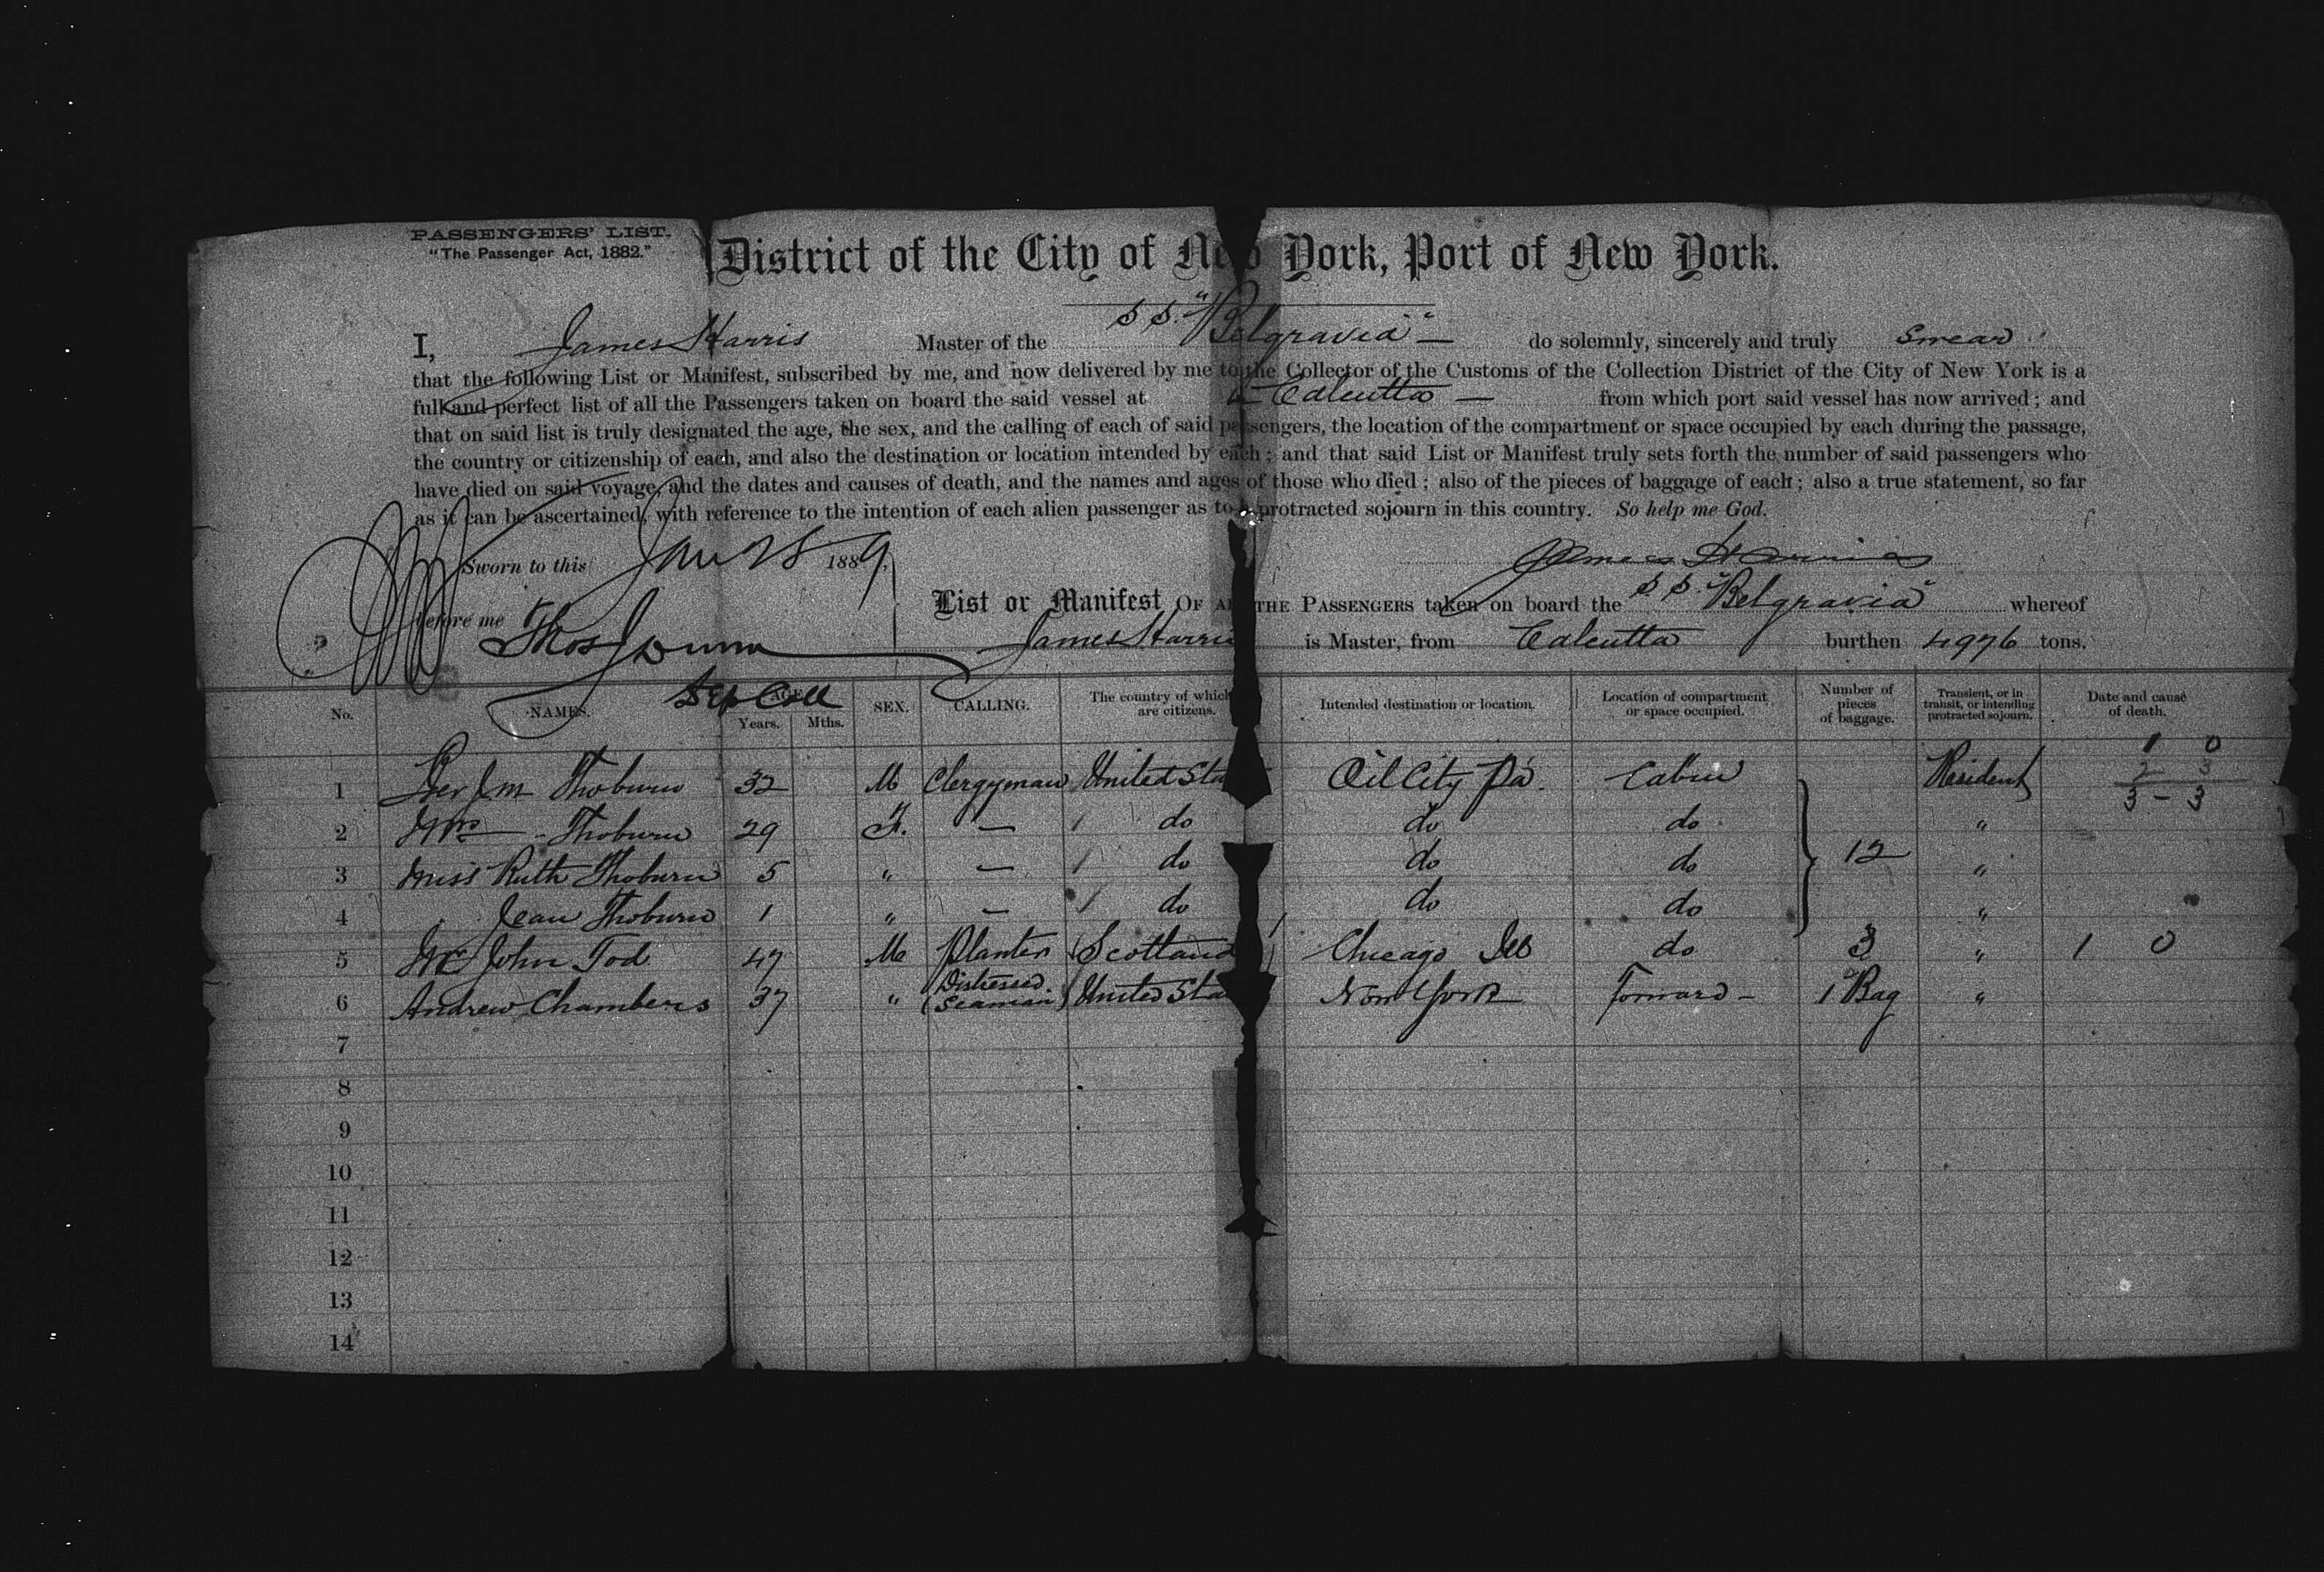 PASSENGERS' LIST.
"The Passenger Act, 1882."
District of the City of New York, Port of New York.
I, James Harris Master of the S S. "Belgravia" — do solemnly, sincerely and truly swear
that the following List or Manifest, subscribed by me, and now delivered by me to the Collector of the Customs of the Collection District of the City of New York is a
full and perfect list of all the Passengers taken on board the said vessel at — Calcutta — from which port said vessel has now arrived; and
that on said list is truly designated the age, the sex, and the calling of each of said passengers, the location of the compartment or space occupied by each during the passage,
the country or citizenship of each, and also the destination or location intended by each; and that said List or Manifest truly sets forth the number of said passengers who
have died on said voyage, and the dates and causes of death, and the names and ages of those who died; also of the pieces of baggage of each; also a true statement, so far
as it can be ascertained, with reference to the intention of each alien passenger as to a protracted sojourn in this country. So help me God.
Sworn to this Jan 28 1889, James Harris
before me Thos Dunn
Dep Coll
List or Manifest OF ALL THE PASSENGERS taken on board the S S. "Belgravia" whereof
James Harris is Master, from Calcutta burthen 4976 tons.
No. NAMES. AGE Years. Mths. SEX. CALLING. The country of which are citizens. Intended destination or location. Location of compartment or space occupied. Number of pieces of baggage. Transient, or in transit, or intending protracted sojourn. Date and cause of death.
1 Rev J M Thoburn 32 M Clergyman United Sta Oil City Pa. Cabin Resident 1 0
2 3
3 - 3
2 Mrs - Thoburn 29 F. — 1 do do do "
3 Miss Ruth Thoburn 5 " — 1 do do do 12 "
4 " Jean Thoburn 1 " — 1 do do do "
5 Mr John Tod 47 M Planter (Scotland) Chicago Ill do 3 " 1 0
6 Andrew Chambers 37 " Distressed (Seaman) United Sta New York Forward - 1 Bag "
7
8
9
10
11
12
13
14